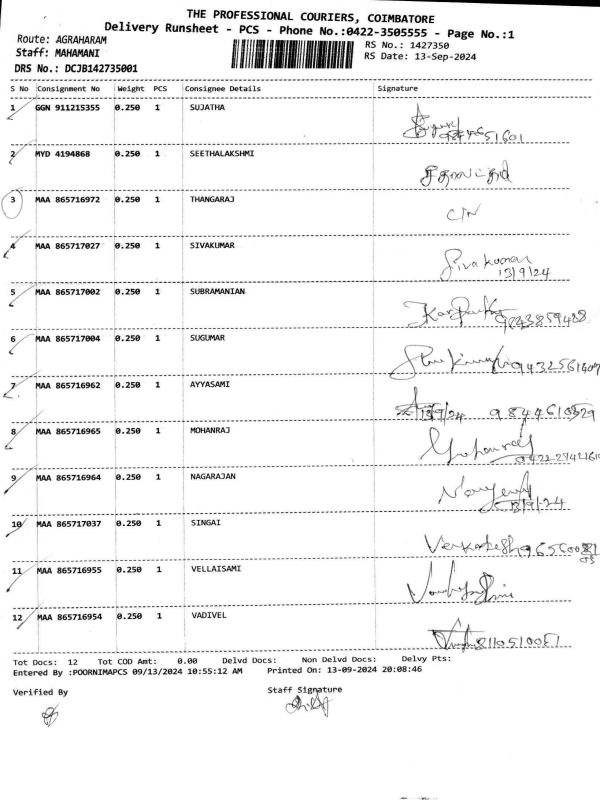 THE PROFESSIONAL COURIERS, COIMBATORE
Delivery Runsheet - PCS - Phone No.:0422-3505555 - Page No.:1
Route: AGRAHARAM
RS No.: 1427350
Staff: MAHAMANI
RS Date: 13-Sep-2024
DRS No.: DCJB142735001
S No Consignment No Weight PCS Consignee Details Signature
1 GGN 911215355 0.250 1 SUJATHA
2 MYD 4194868 0.250 1 SEETHALAKSHMI
3 MAA 865716972 0.250 1 THANGARAJ C/N
4 MAA 865717027 0.250 1 SIVAKUMAR Sivakumar
13/9/24
5 MAA 865717002 0.250 1 SUBRAMANIAN
6 MAA 865717004 0.250 1 SUGUMAR
7 MAA 865716962 0.250 1 AYYASAMI
13/9/24
8 MAA 865716965 0.250 1 MOHANRAJ
9 MAA 865716964 0.250 1 NAGARAJAN
13/9/24
10 MAA 865717037 0.250 1 SINGAI
11 MAA 865716955 0.250 1 VELLAISAMI
12 MAA 865716954 0.250 1 VADIVEL
Tot Docs: 12 Tot COD Amt: 0.00 Delvd Docs: Non Delvd Docs: Delvy Pts:
Entered By :POORNIMAPCS 09/13/2024 10:55:12 AM Printed On: 13-09-2024 20:08:46
Verified By Staff Signature